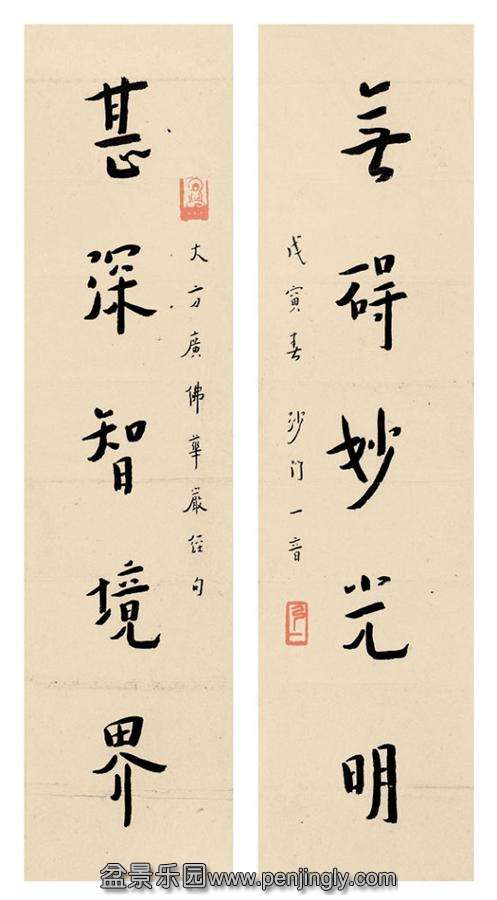 無碍妙光明
戊寅春 沙门一音
大方廣佛華嚴經句
甚深智境界
盆景乐园www.penjingly.com